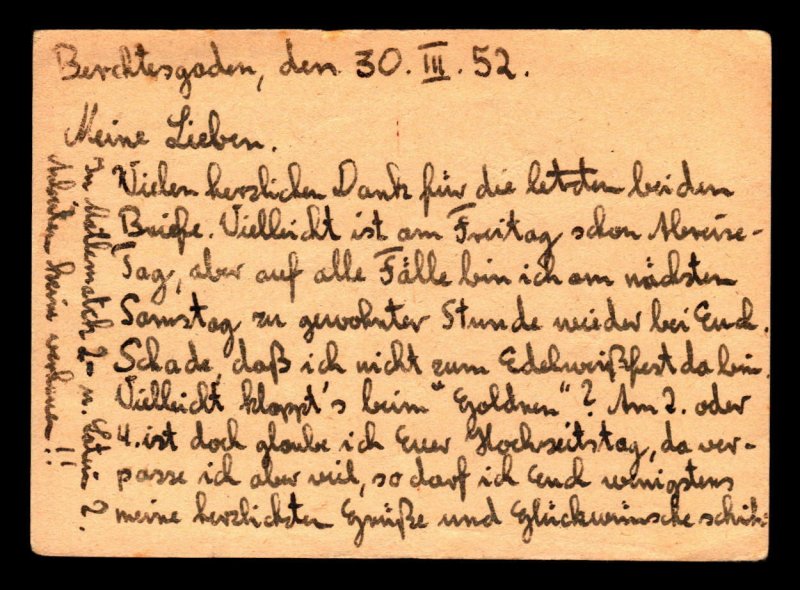 Berchtesgaden, den 30. III. 52.
Meine Lieben.
Vielen herzlichen Dank für die letzten beiden
Briefe. Vielleicht ist am Freitag schon Abreise-
Tag, aber auf alle Fälle bin ich am nächsten
Samstag zu gewohnter Stunde wieder bei Euch.
Schade, daß ich nicht zum Edelweißfest da bin.
Vielleicht klappt's beim "Goldnen"? Am 2. oder
4. ist doch glaube ich Euer Hochzeitstag, da ver-
passe ich aber viel, so darf ich Euch wenigstens
meine herzlichsten Grüße und Glückwünsche schik-
In Mathematik 2- u. Latein 2.
Arbeiten keine !!